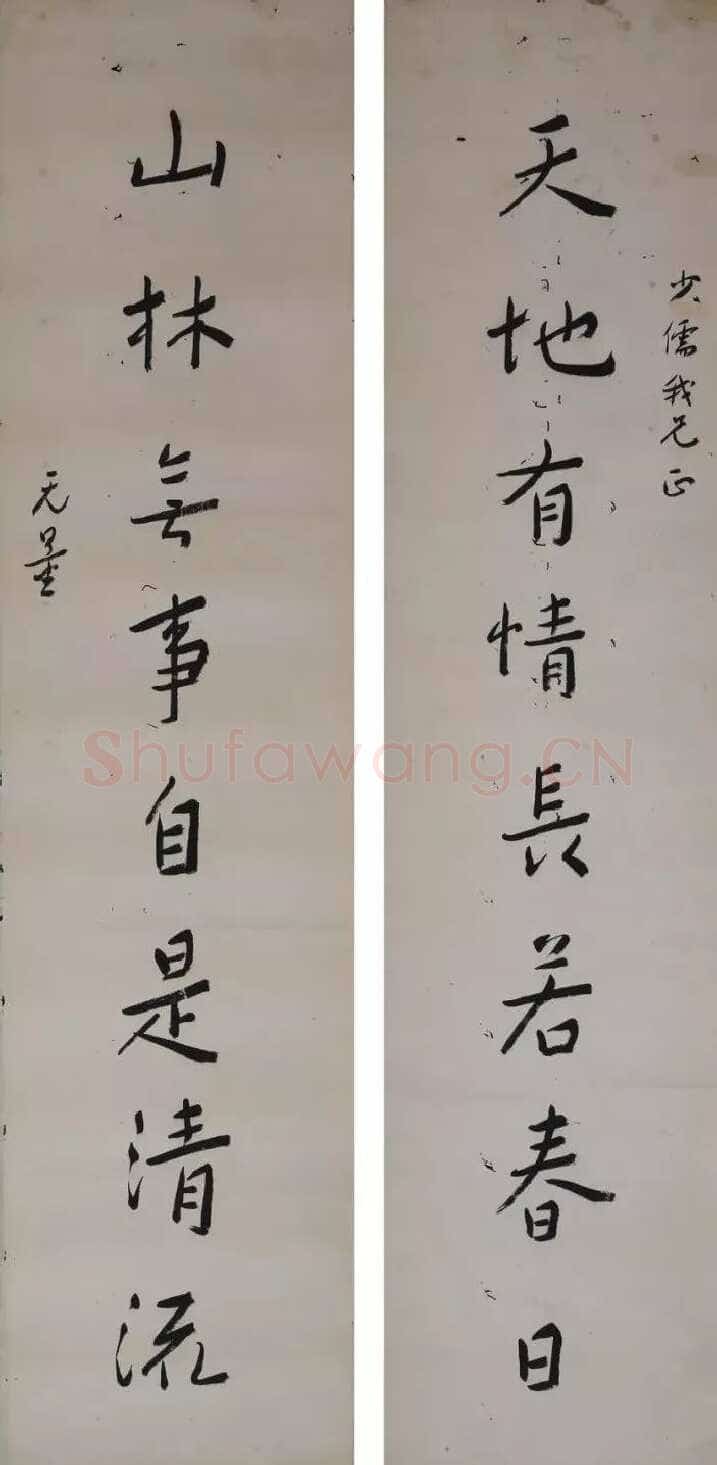 少儒我兄正
天地有情長若春日
山林無事自是清流
无量
Shufawang.CN